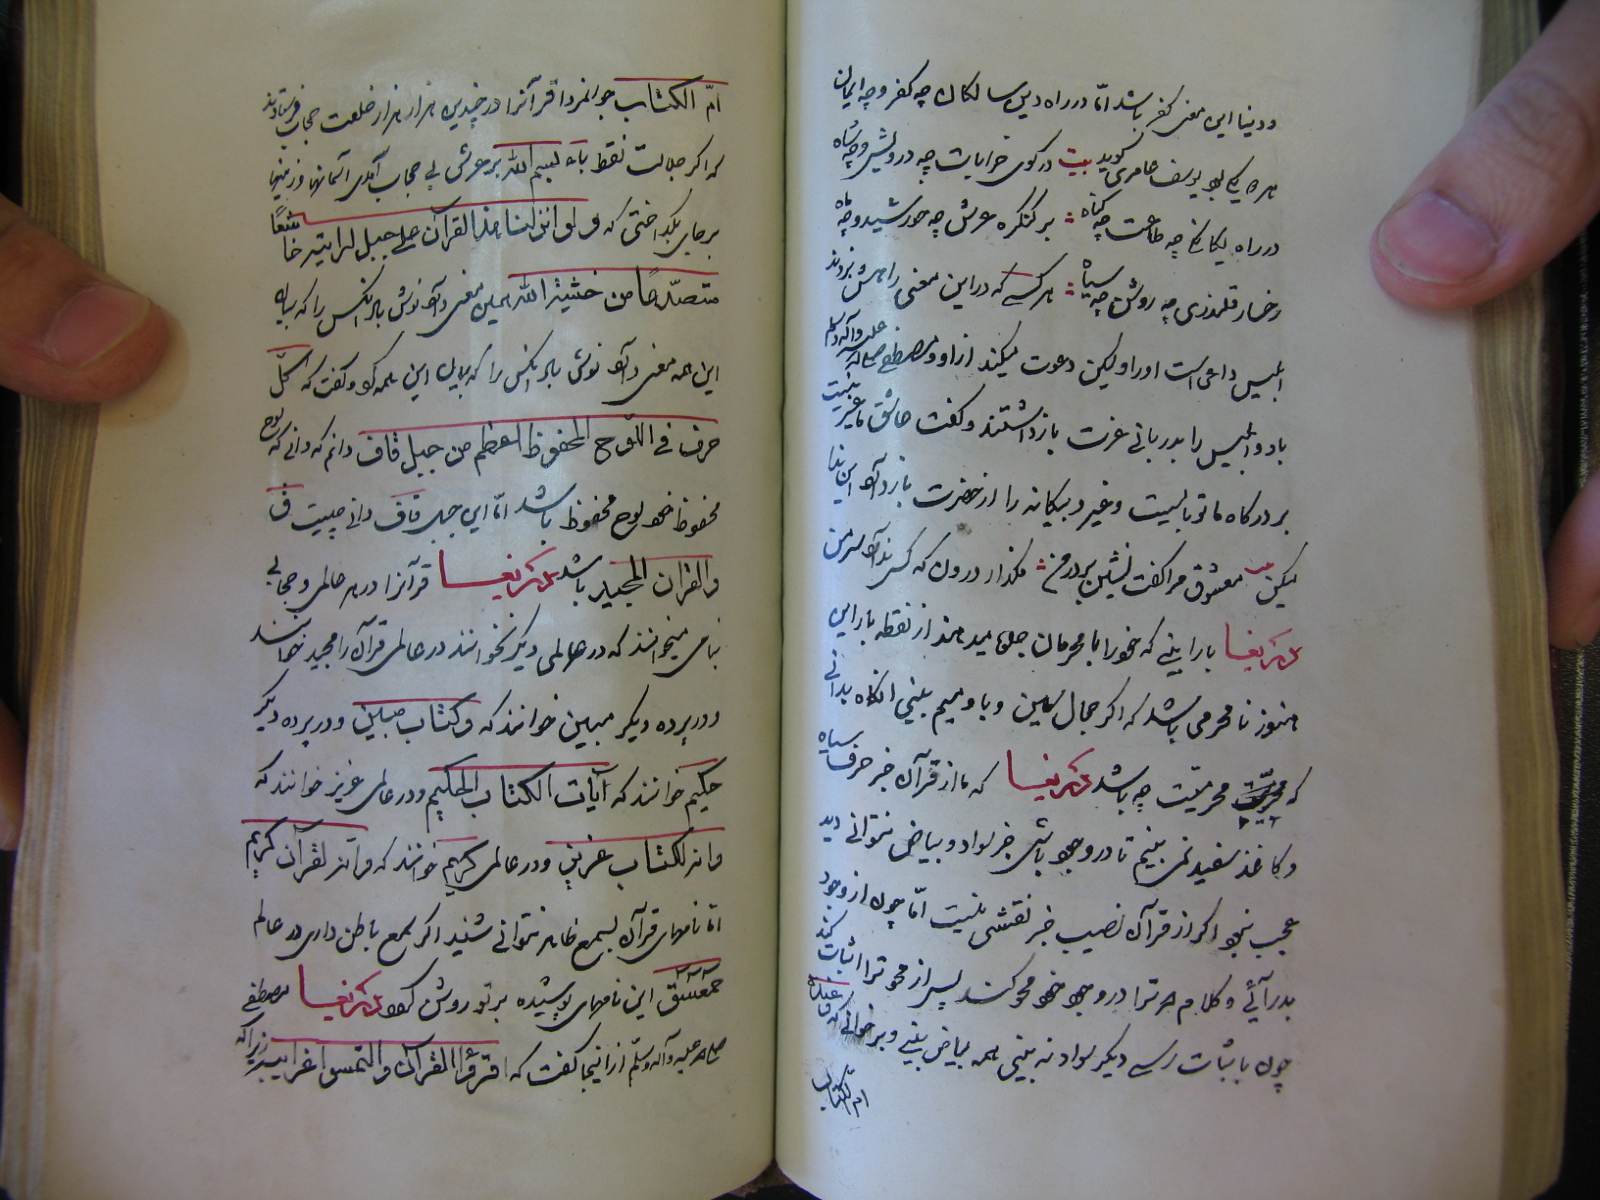 و دنیا این معنی کفر باشد اما در راه دین سالکان چه کفر و چه ایمان
هر دو یکی بود یوسف عامری گوید بیت در کوی خرابات چه درویش و چه شاه
در راه یگانگی چه طاعت چه گناه بر کنگره عرش چه خورشید و چه ماه
رخسار قلندری چه روشن چه سیاه هر کسی که در این معنی راهش نبردند
ابلیس داعی است او را ولیکن دعوت میکند از او و مصطفی صلی الله علیه و آله وسلم
بدو ابلیس را بدربانی عزت بازداشتند و گفت عاشق ما غیرتیست
بر درگاه ما تو بایست و غیر و بیگانه را از حضرت ما باز دار این ندا
میکن بیت معشوق مرا گفت نشین بر در من مگذار درون که کسی ندارد سر من
ای عزیز بار این که خود را با محرمان جلوه میدهند از نقطه باز این
هنوز نامحرمی باشد که اگر جمال سین و با و میم بینی آنگاه بدانی
که محرمیت چه باشد ای عزیز که ما از قرآن جز حرف سیاه
و کاغذ سفید نمی بینیم تا در وجود باشی جز سواد و بیاض نتوانی دید
عجب نبود اگر از قرآن نصیب جز نقشی نیست اما چون از وجود
بدرآئی و کلام الله ترا در وجود خود محو کند پس از محو ترا اثبات کند
چون با ثبات رسی دیگر سواد نه بینی همه بیاض بینی و بر خوانی که و عنده
ام الکتاب
ام الکتاب جوانمردا قرآنرا در چندین هزار هزار خلعت حجاب فرستادند
که اگر جلالت نقطه باء بسم الله بر عرش بی حجاب آمدی آسمانها و زمینها
بر جای بگداختی که و لو انزلنا هذا القرآن علی جبل لرایته خاشعا
متصدعا من خشیة الله همین معنی دارد نوش باد آنکس را که بیان
این همه معنی دارد نوش باد آنکس را که بیان این همه کرد و گفت که کل
حرف فی اللوح المحفوظ اعظم من جبل قاف دانم که دانی که لوح
محفوظ خود لوح محفوظ باشد اما این جبل قاف دانی چیست ق
والقرآن المجید باشد ای عزیز قرآنرا در هر عالمی و حجابی
بنامی میخوانند که در عالمی دیگر نخوانند در عالمی قرآن را مجید خوانند
و در پرده دیگر مبین خوانند که و کتاب مبین و در پرده دیگر
حکیم خوانند که آیات الکتاب الحکیم و در عالمی عزیز خوانند که
وانه لکتاب عزیز و در عالمی کریم خوانند که و انه لقرآن کریم
اما نامهای قرآن بسمع ظاهر نتوانی شنید اگر سمع باطن داری در عالم
حمعسق این نامهای پوشیده بر تو روشن گردد ای عزیز مصطفی
صلی الله علیه و آله وسلم از اینجا گفت که اقرؤا القرآن و التمسوا غرایبه زیرا که